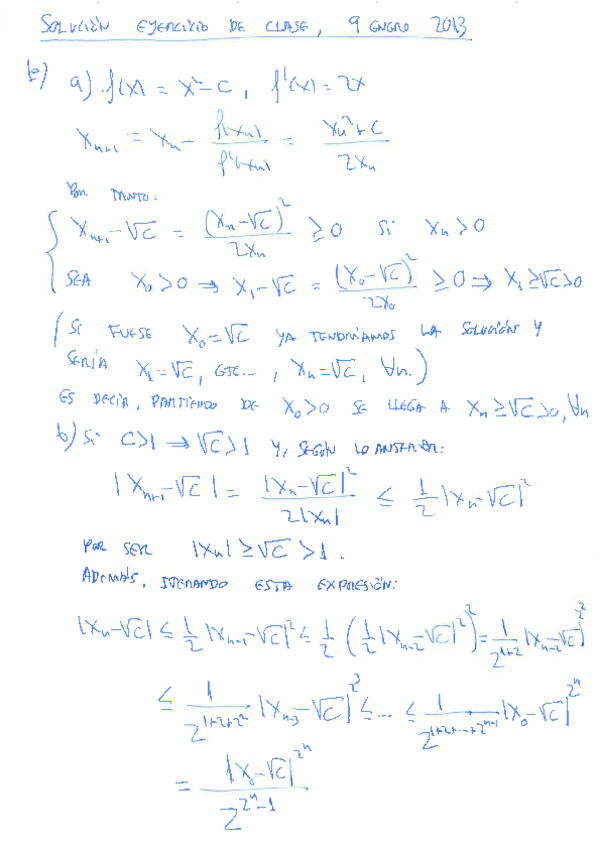 SOLUCIÓN EJERCICIO DE CLASE, 9 ENERO 2013
a) f(x) = x² - C, f'(x) = 2x
x_{n+1} = x_n - f(x_n)/f'(x_n) = (x_n² + C)/(2x_n)
POR TANTO:
x_{n+1} - √C = (x_n - √C)²/(2x_n) ≥ 0 SI x_n > 0
SEA x_0 > 0 ⇒ x_1 - √C = (x_0 - √C)²/(2x_0) ≥ 0 ⇒ x_1 ≥ √C > 0
(SI FUESE x_0 = √C YA TENDRÍAMOS LA SOLUCIÓN Y
SERÍA x_1 = √C, ETC..., x_n = √C, ∀n.)
ES DECIR, PARTIENDO DE x_0 > 0 SE LLEGA A x_n ≥ √C > 0, ∀n
b) SI C > 1 → √C > 1 Y, SEGÚN LO ANTERIOR:
|x_{n+1} - √C| = |x_n - √C|²/(2|x_n|) ≤ 1/2 |x_n - √C|²
POR SER |x_n| ≥ √C > 1.
ADEMÁS, ITERANDO ESTA EXPRESIÓN:
|x_n - √C| ≤ 1/2 |x_{n-1} - √C|² ≤ 1/2 (1/2 |x_{n-2} - √C|²)² = 1/2^{1+2} |x_{n-2} - √C|^{2²}
≤ 1/2^{1+2+2²} |x_{n-3} - √C|^{2³} ≤ ... ≤ 1/2^{1+2+...+2^{n-1}} |x_0 - √C|^{2^n}
= |x_0 - √C|^{2^n}/2^{2^n - 1}